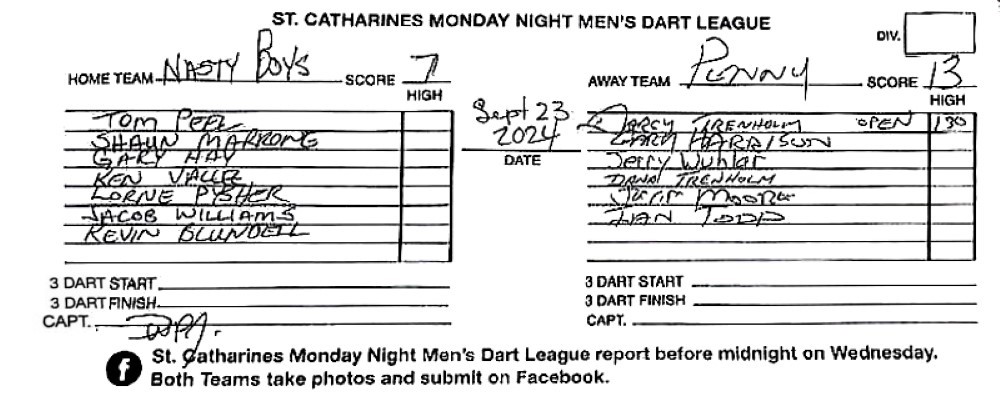 ST. CATHARINES MONDAY NIGHT MEN'S DART LEAGUE
DIV.
HOME TEAM NASTY BOYS SCORE 7
HIGH
AWAY TEAM PENNY SCORE 13
HIGH
TOM PEEL
SHAUN MARRONE
GARY HAY
KEN VALLEE
LORNE PYSHER
JACOB WILLIAMS
KEVIN BLUNDELL
Sept 23
2024
DATE
DARCY TRENHOLM OPEN 130
LARRY HARRISON
Jerry Wuhlar
DANA TRENHOLM
MOORE
IAN TODD
3 DART START
3 DART FINISH
CAPT.
3 DART START
3 DART FINISH
CAPT.
St. Catharines Monday Night Men's Dart League report before midnight on Wednesday.
Both Teams take photos and submit on Facebook.